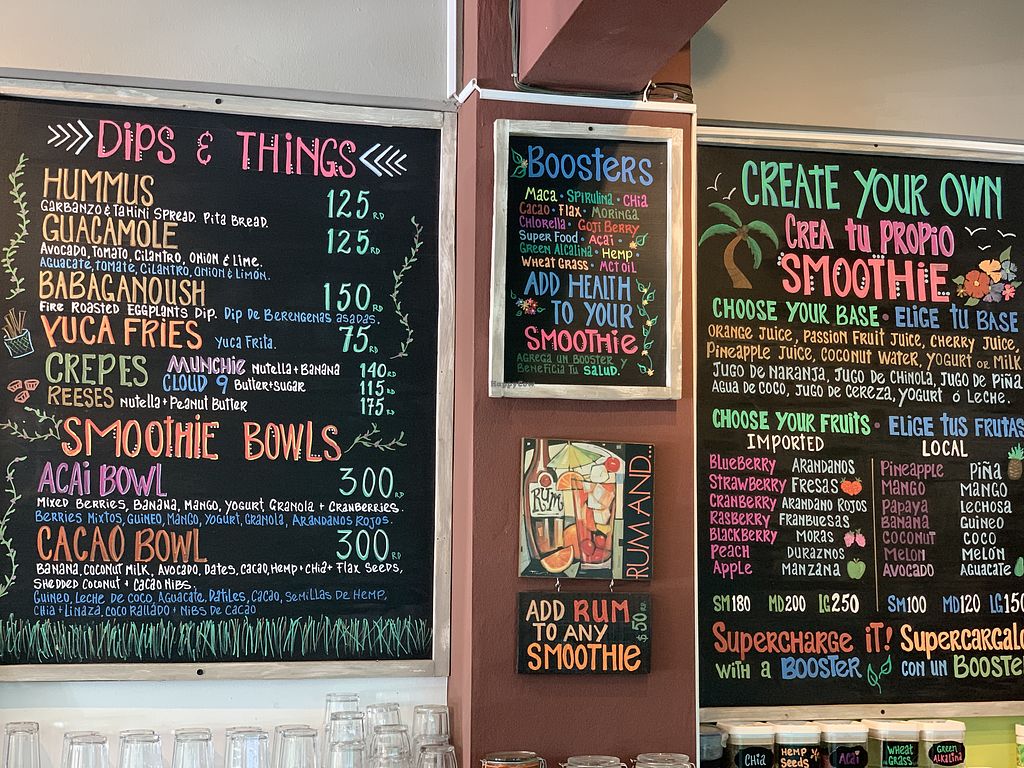 DIPS & THINGS
HUMMUS 125 RD
GARBANZO & TAHINI SPREAD. PITA BREAD.
GUACAMOLE 125 RD
AVOCADO, TOMATO, CILANTRO, ONION & LIME.
AGUACATE, TOMATE, CILANTRO, ONION & LIMÓN.
BABAGANOUSH 150 RD
FIRE ROASTED EGGPLANTS DIP. DIP DE BERENGENAS ASADAS.
YUCA FRIES YUCA FRITA. 75 RD
CREPES MUNCHIE NUTELLA + BANANA 140 RD
CLOUD 9 BUTTER + SUGAR 115 RD
REESES NUTELLA + PEANUT BUTTER 175 RD
SMOOTHIE BOWLS
ACAI BOWL 300 RD
MIXED BERRIES, BANANA, MANGO, YOGURT, GRANOLA + CRANBERRIES.
BERRIES MIXTOS, GUINEO, MANGO, YOGURT, GRANOLA, ARANDANOS ROJOS.
CACAO BOWL 300 RD
BANANA, COCONUT MILK, AVOCADO, DATES, CACAO, HEMP + CHIA + FLAX SEEDS,
SHEDDED COCONUT + CACAO NIBS.
GUINEO, LECHE DE COCO, AGUACATE, DATILES, CACAO, SEMILLAS DE HEMP,
CHIA + LINAZA, COCO RALLADO + NIBS DE CACAO
BOOSTERS
MACA • SPIRULINA • CHIA
CACAO • FLAX • MORINGA
CHLORELLA • GOJI BERRY
SUPER FOOD • AÇAI •
GREEN ALCALINA • HEMP •
WHEAT GRASS • MCT OIL
ADD HEALTH
TO YOUR
SMOOTHIE
AGREGA UN BOOSTER Y
BENEFICIA TU SALUD.
HappyCow
RUM
RUM AND...
ADD RUM
TO ANY
SMOOTHIE
$50 RD
CREATE YOUR OWN
CREA TU PROPIO
SMOOTHIE
CHOOSE YOUR BASE • ELIGE TU BASE
ORANGE JUICE, PASSION FRUIT JUICE, CHERRY JUICE,
PINEAPPLE JUICE, COCONUT WATER, YOGURT OR MILK
JUGO DE NARANJA, JUGO DE CHINOLA, JUGO DE PIÑA
AGUA DE COCO, JUGO DE CEREZA, YOGURT Ó LECHE.
CHOOSE YOUR FRUITS • ELIGE TUS FRUTAS
IMPORTED LOCAL
BLUEBERRY ARANDANOS PINEAPPLE PIÑA
STRAWBERRY FRESAS MANGO MANGO
CRANBERRY ARANDANO ROJOS PAPAYA LECHOSA
RASBERRY FRANBUESAS BANANA GUINEO
BLACKBERRY MORAS COCONUT COCO
PEACH DURAZNOS MELON MELÓN
APPLE MANZANA AVOCADO AGUACATE
SM180 MD200 LG250 SM100 MD120 LG150
SUPERCHARGE IT! SUPERCARGALO
WITH A BOOSTER CON UN BOOSTE
CHIA
HEMP SEEDS
AÇAI
WHEAT GRASS
GREEN ALKALINA